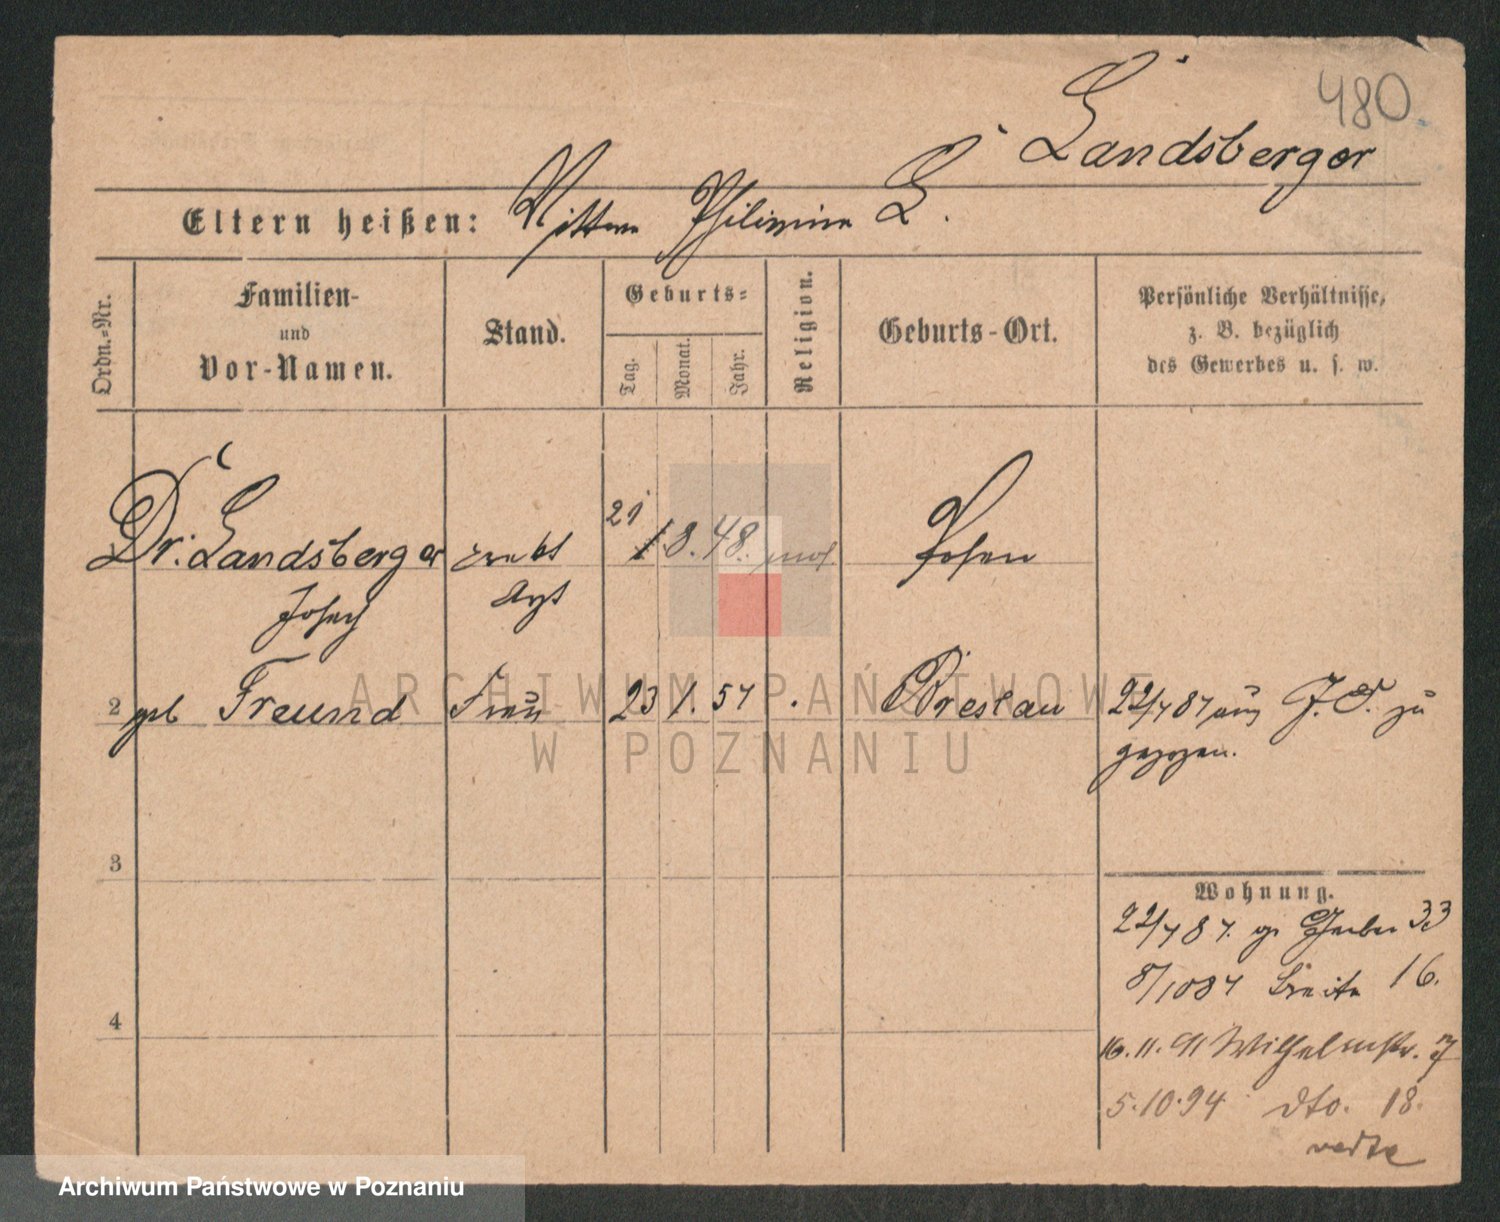 480
Landsberger
Eltern heißen: L.
Ordn.-Nr.
Familien-
und
Vor-Namen.
Stand.
Geburts-
Tag.
Monat.
Jahr.
Religion.
Geburts-Ort.
Persönliche Verhältnisse,
z. B. bezüglich
des Gewerbes u. s. w.
Dr. Landsberger
Josef
prakt
Arzt
21 8. 48. mos.
Posen
2 geb Freund Frau 23 1. 57 Breslau
22/7 87 aus zu
gezogen.
3
Wohnung.
22/7 87. gr Gerber 33
8/10 87 Breite 16.
4
16.11.91 Wilhelmstr. 7
5.10.94 dto. 18.
verte
ARCHIWUM PAŃSTWOWE
W POZNANIU
Archiwum Państwowe w Poznaniu